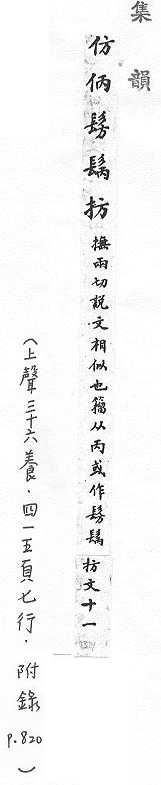 集韻
仿俩髣髴抲撫兩切説文相似也籀从丙或作髣髴抲文十一
(上聲三十六養.四一五頁七行.附錄P.820)